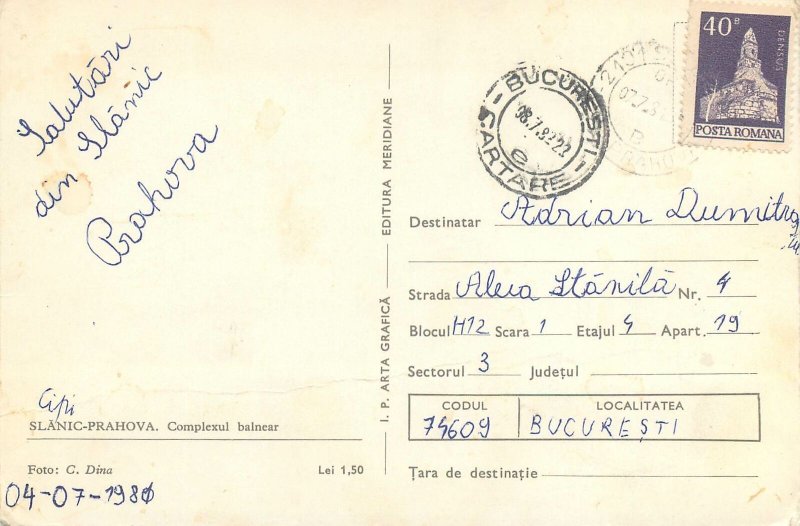 Salutări
din Slănic
Prahova
Cipi
SLĂNIC-PRAHOVA. Complexul balnear
Foto: C. Dina
Lei 1,50
04-07-1980
I. P. ARTA GRAFICĂ — EDITURA MERIDIANE
40 B
DENSUS
POSTA ROMANA
BUCUREȘTI
CARTARE
08.7.8
e
07.7.8
Destinatar Adrian Dumitra
Strada Aleea Stănilă Nr. 4
Blocul H12 Scara 1 Etajul 4 Apart. 19
Sectorul 3 Județul
CODUL LOCALITATEA
74609 BUCUREȘTI
Țara de destinație